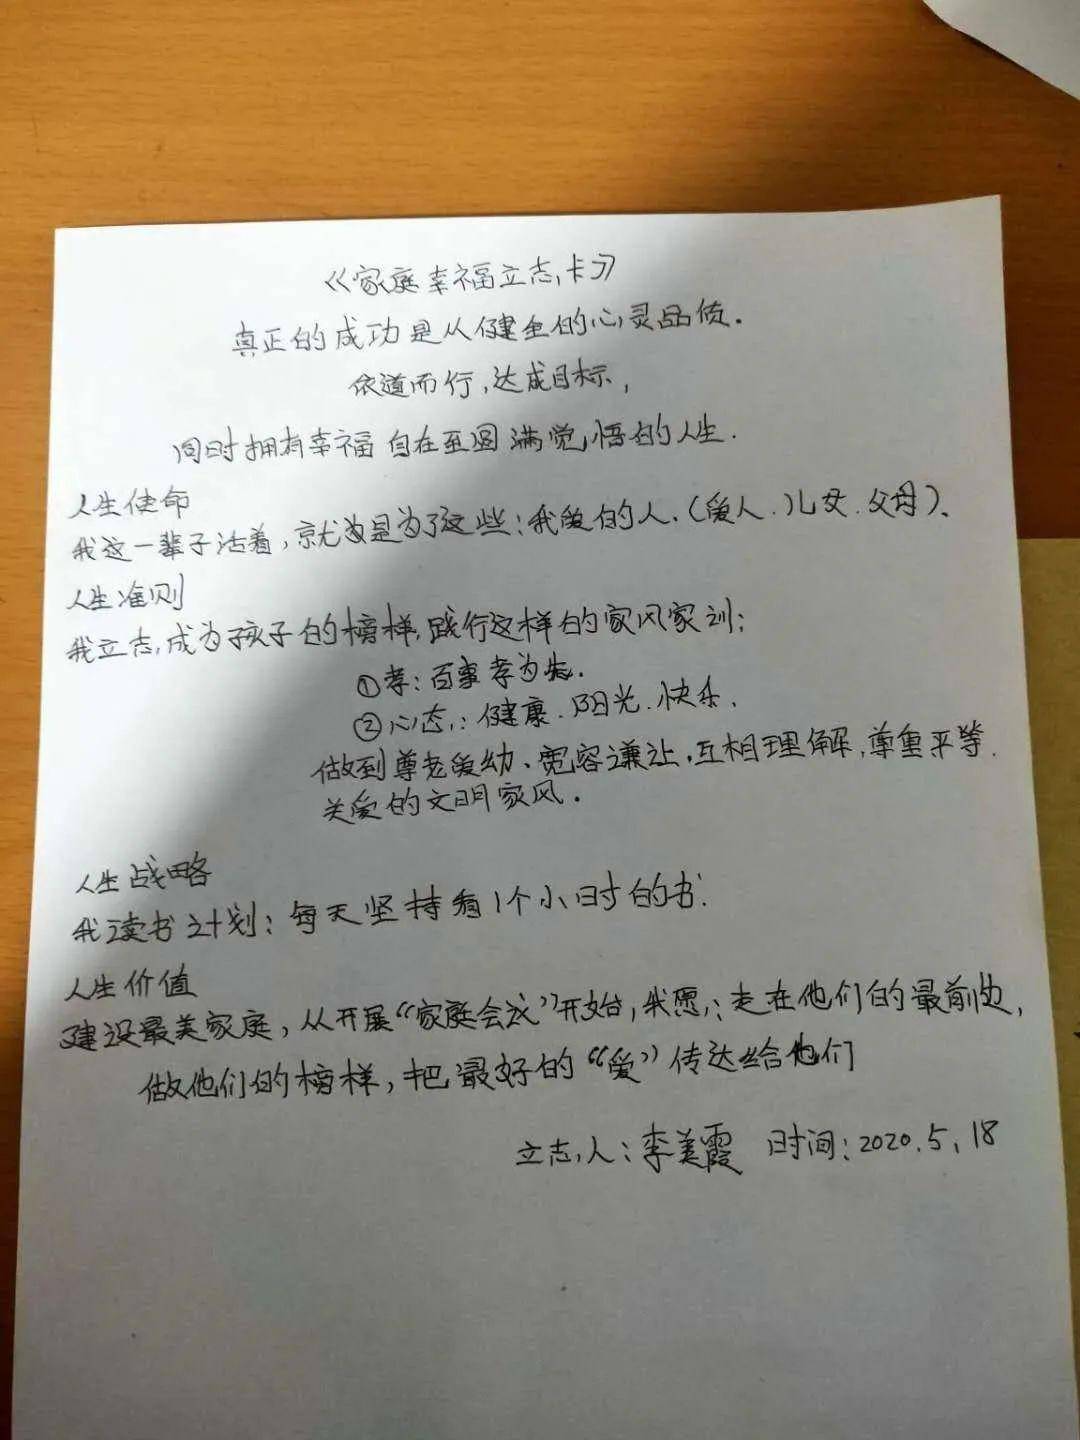 《家庭幸福立志卡》
真正的成功是从健全的心灵品质.
依道而行,达成目标,
同时拥有幸福自在至圆满觉悟的人生.
人生使命
我这一辈子活着,就是为了这些:我爱的人.(爱人.儿女.父母)、
人生准则
我立志,成为孩子的榜样,践行这样的家风家训:
①孝:百事孝为先.
②心态:健康.阳光.快乐.
做到尊老爱幼、宽容谦让,互相理解,尊重平等.
关爱的文明家风.
人生战略
我读书计划:每天坚持看1个小时的书.
人生价值
建设最美家庭,从开展“家庭会议”开始,我愿:走在他们的最前边,
做他们的榜样,把最好的“爱”传达给他们
立志人:李美霞 时间:2020.5.18